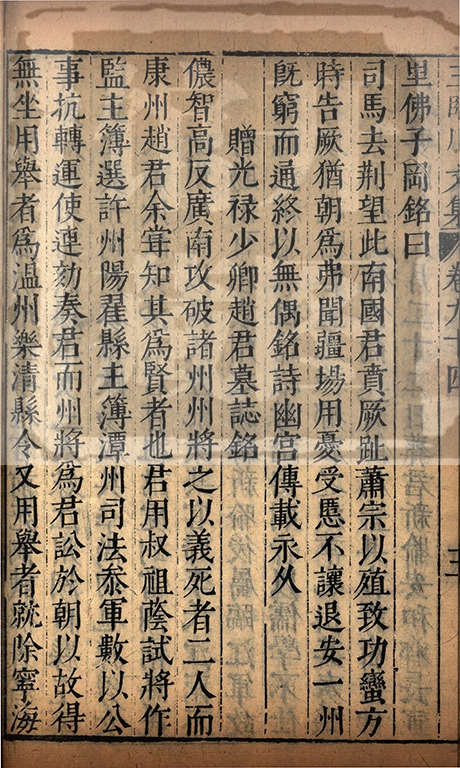 王臨川文集 卷九十四 三
里佛子岡銘曰
司馬去荆望此南國君賁厥趾蕭宗以殖致功蠻方
時告厥猶朝為弗聞疆場用憂受慝不讓退安一州
旣窮而通終以無偶銘詩幽宫傳載永久
贈光禄少卿趙君墓誌銘
儂智高反廣南攻破諸州州將之以義死者二人而
康州趙君余嘗知其為賢者也君用叔祖蔭試將作
監主簿選許州陽翟縣主簿潭州司法叅軍數以公
事抗轉運使連劾奏君而州將為君訟於朝以故得
無坐用舉者為温州樂清縣令又用舉者就除寧海